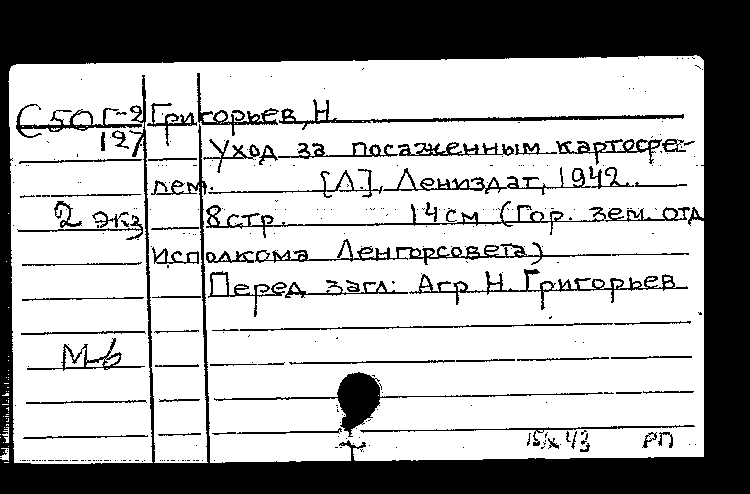 С50 Г-2 Григорьев, Н.
127
Уход за посаженным картофе-
лем. [Л.], Лениздат, 1942.
2 экз 8 стр. 14 см (Гор. зем. отд
Исполкома Ленгорсовета)
Перед загл: Агр Н. Григорьев
М-б
15/X 43 РП